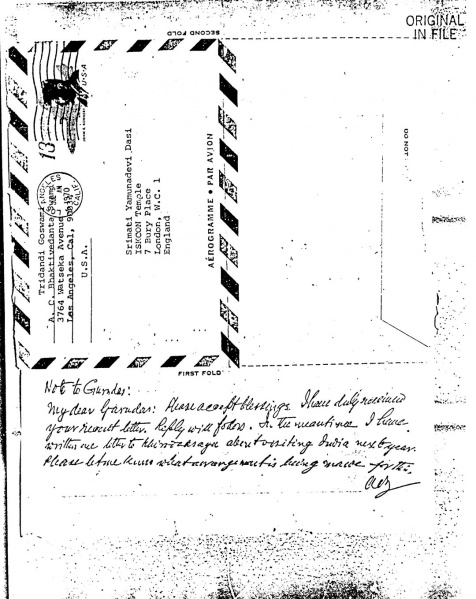 ORIGINAL
IN FILE
SECOND FOLD
DO NOT
13
U.S.A.
Tridandi Goswami
A. C. Bhaktivedanta
3764 Watseka Avenue
Los Angeles, Cal,
U.S.A.
Srimati Yamunadevi Dasi
ISKCON Temple
7 Bury Place
London, W.C. 1
England
AÉROGRAMME • PAR AVION
FIRST FOLD
Note to Gurudas:
My dear Gurudas: Please accept blessings. I have duly received
your recent letter. Reply will follow. In the meantime I have
written one letter to about visiting India next year.
Please let me know what arrangement is being made for this.